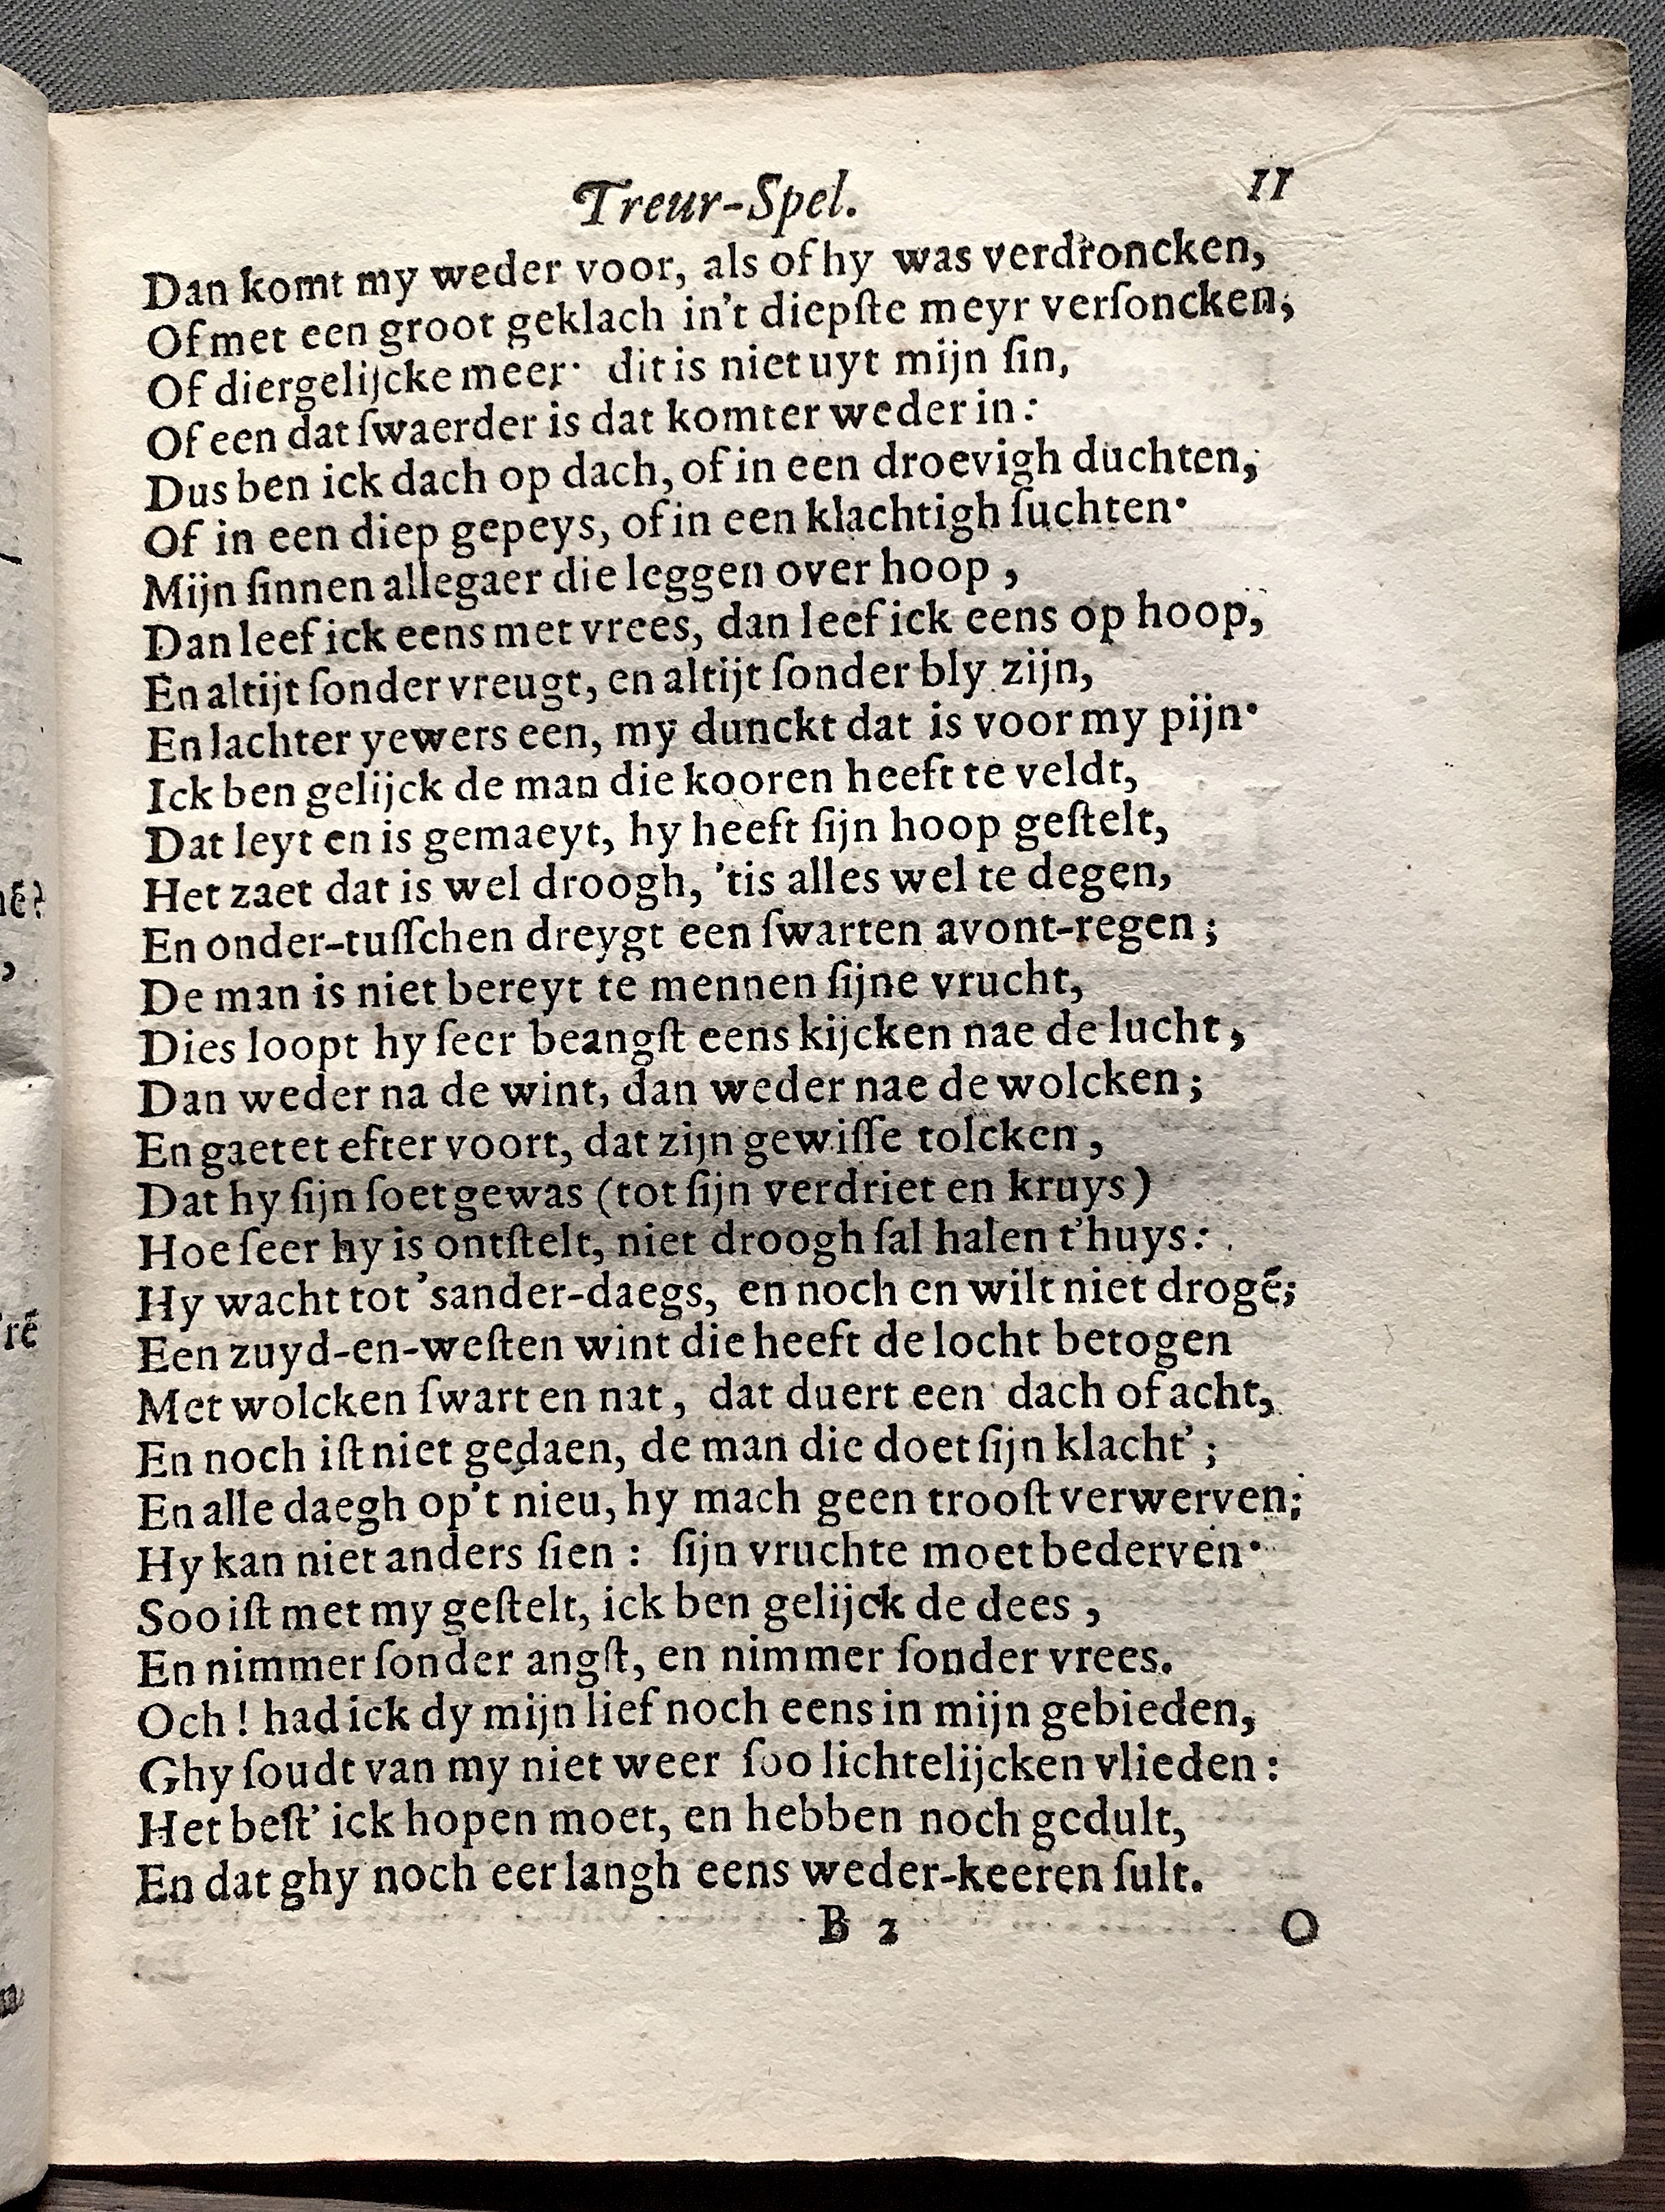 Treur-Spel. 11
Dan komt my weder voor, als of hy was verdroncken,
Of met een groot geklach in't diepſte meyr verſoncken,
Of diergelijcke meer· dit is niet uyt mijn ſin,
Of een dat ſwaerder is dat komter weder in:
Dus ben ick dach op dach, of in een droevigh duchten,
Of in een diep gepeys, of in een klachtigh ſuchten·
Mijn ſinnen allegaer die leggen over hoop ,
Dan leef ick eens met vrees, dan leef ick eens op hoop,
En altijt ſonder vreugt, en altijt ſonder bly zijn,
En lachter yewers een, my dunckt dat is voor my pijn·
Ick ben gelijck de man die kooren heeft te veldt,
Dat leyt en is gemaeyt, hy heeft ſijn hoop geſtelt,
Het zaet dat is wel droogh, 'tis alles wel te degen,
En onder-tuſſchen dreygt een ſwarten avont-regen;
De man is niet bereyt te mennen ſijne vrucht,
Dies loopt hy ſeer beangſt eens kijcken nae de lucht,
Dan weder na de wint, dan weder nae de wolcken;
En gaetet efter voort, dat zijn gewiſſe tolcken,
Dat hy ſijn ſoet gewas (tot ſijn verdriet en kruys)
Hoe ſeer hy is ontſtelt, niet droogh ſal halen t'huys:
Hy wacht tot 'sander-daegs, en noch en wilt niet drogē;
Een zuyd-en-weſten wint die heeft de locht betogen
Met wolcken ſwart en nat, dat duert een dach of acht,
En noch iſt niet gedaen, de man die doet ſijn klacht';
En alle daegh op't nieu, hy mach geen trooſt verwerven;
Hy kan niet anders ſien: ſijn vruchte moet bederven·
Soo iſt met my geſtelt, ick ben gelijck de dees ,
En nimmer ſonder angſt, en nimmer ſonder vrees.
Och! had ick dy mijn lief noch eens in mijn gebieden,
Ghy ſoudt van my niet weer ſoo lichtelijcken vlieden:
Het beſt' ick hopen moet, en hebben noch gedult,
En dat ghy noch eer langh eens weder-keeren ſult.
B 2 O